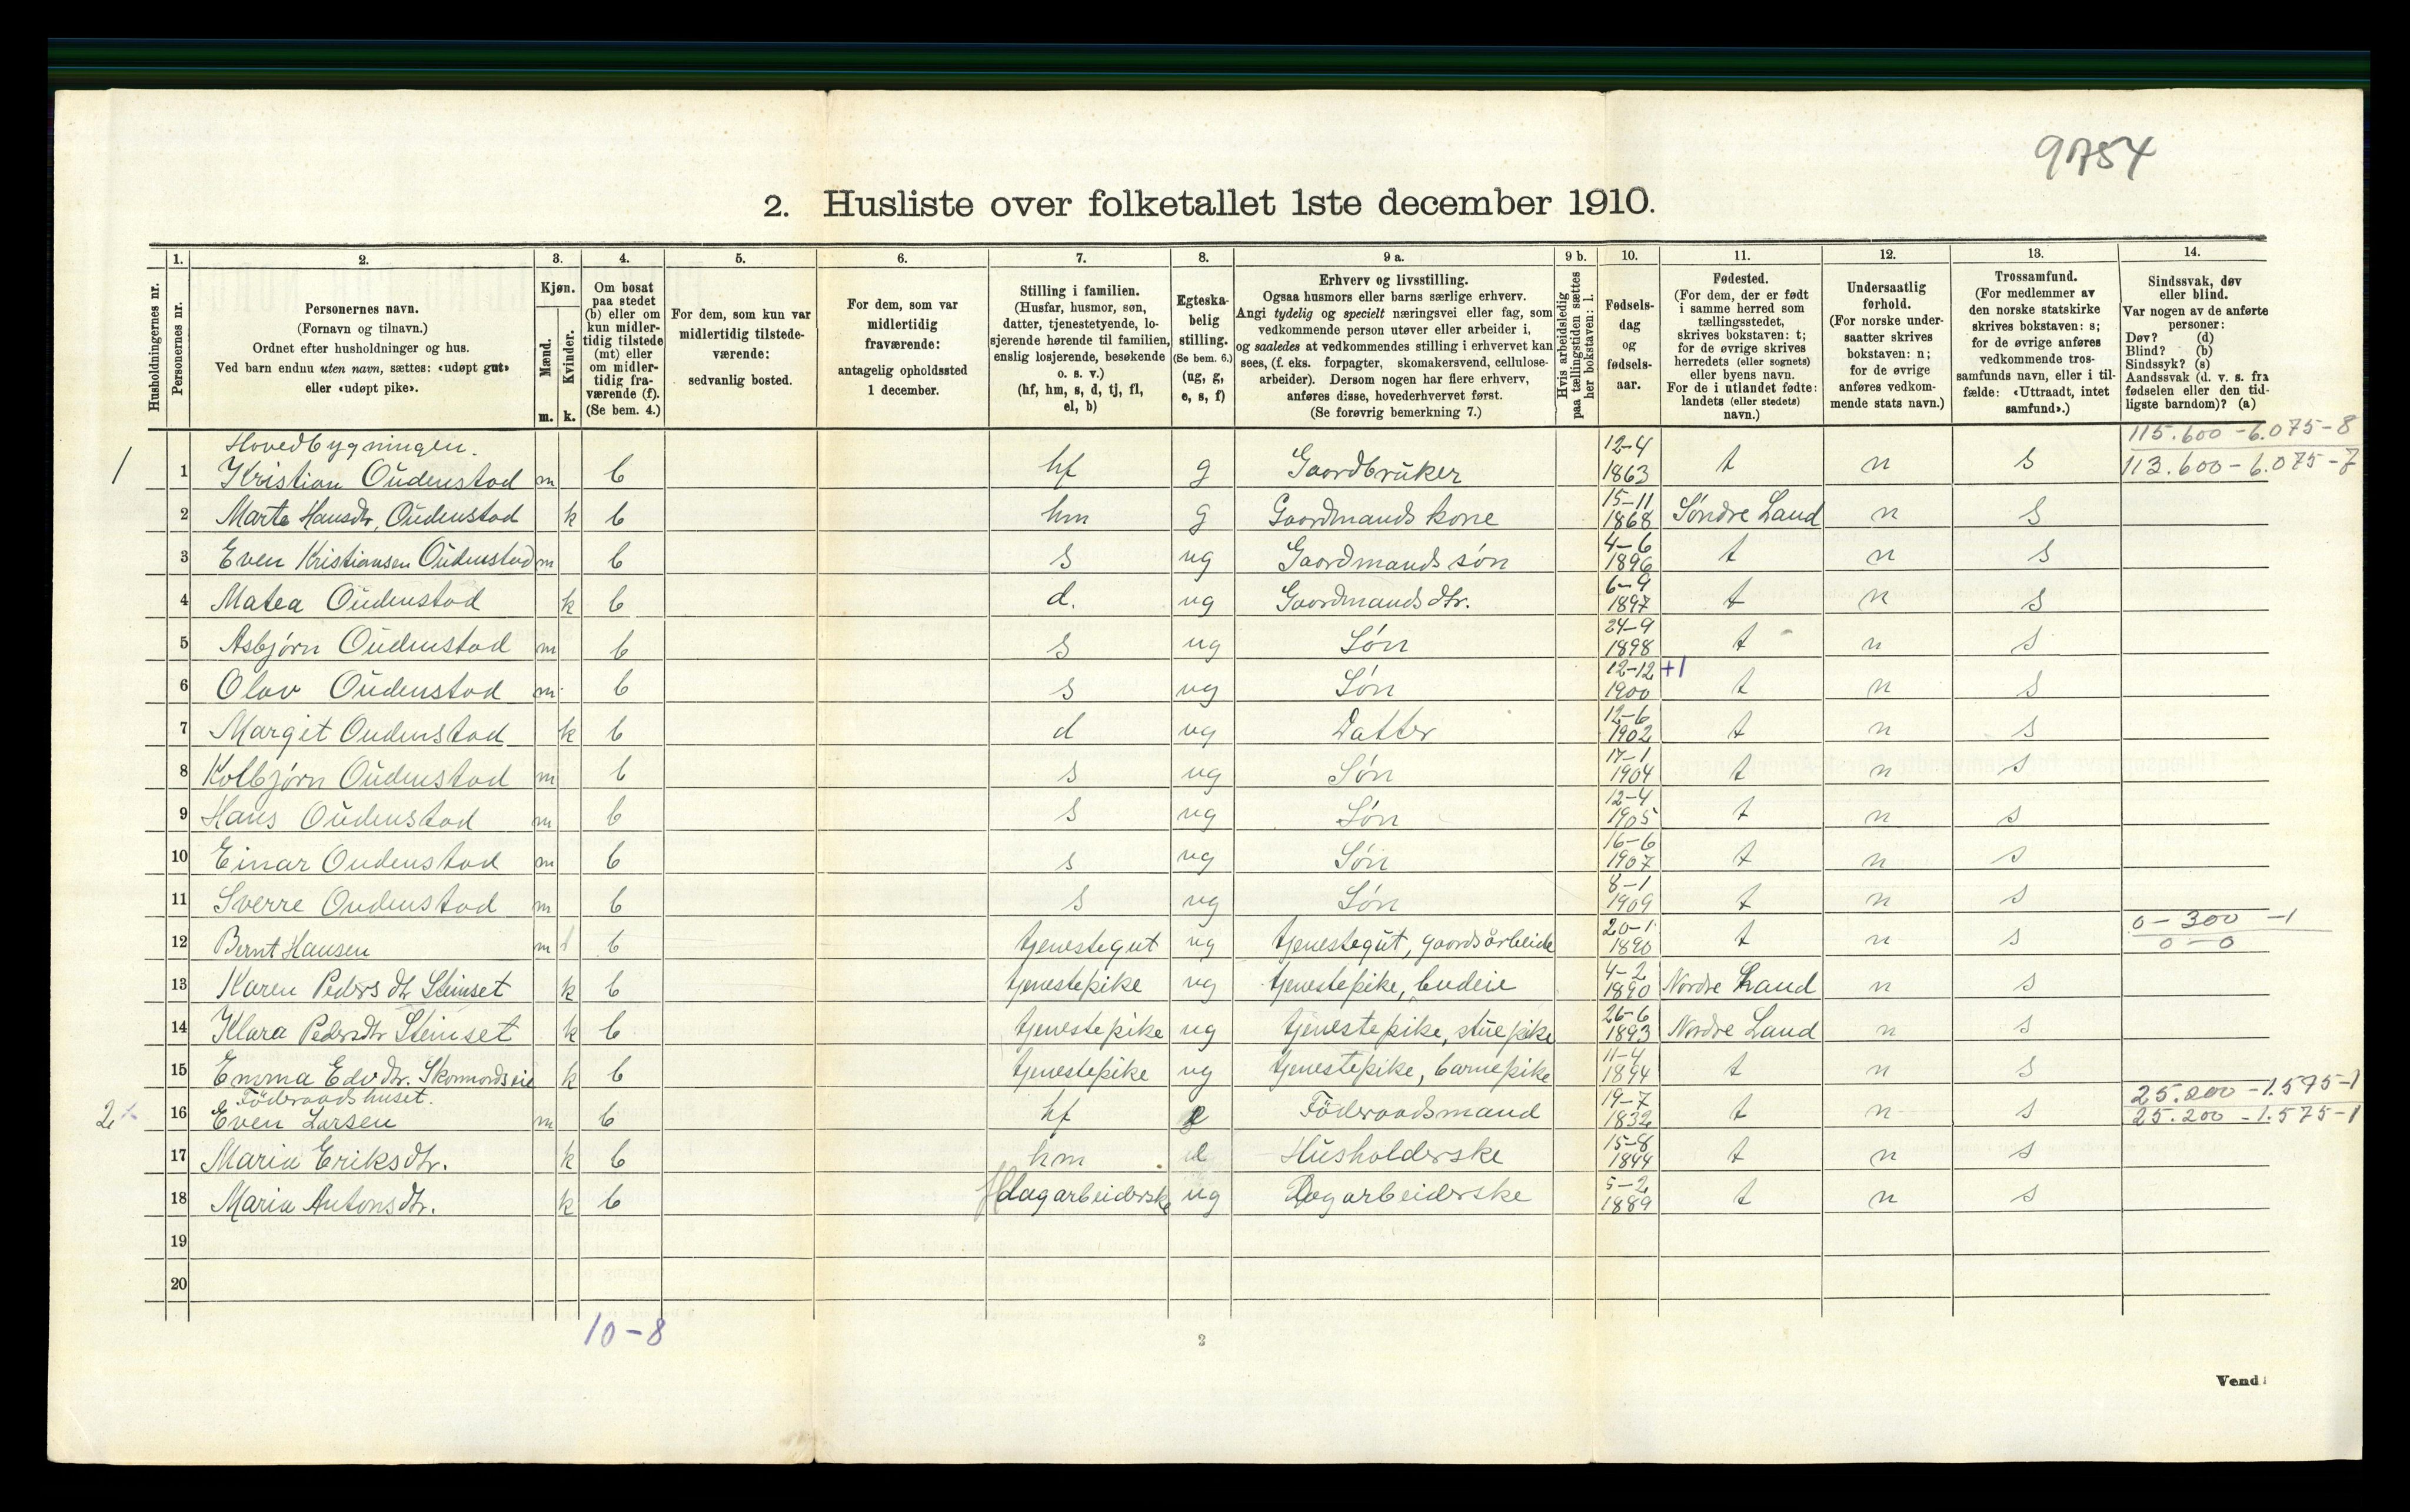 9754
2. Husliste over folketallet 1ste december 1910.
Husholdningernes nr.
1. Personernes nr.
2. Personernes navn.
(Fornavn og tilnavn.)
Ordnet efter husholdninger og hus.
Ved barn endnu uten navn, sættes: «udøpt gut»
eller «udøpt pike».
3. Kjøn.
Mænd. m.
Kvinder. k.
4. Om bosat
paa stedet
(b) eller om
kun midler-
tidig tilstede
(mt) eller
om midler-
tidig fra-
værende (f).
(Se bem. 4.)
5. For dem, som kun var
midlertidig tilstede-
værende:
sedvanlig bosted.
6. For dem, som var
midlertidig
fraværende:
antagelig opholdssted
1 december.
7. Stilling i familien.
(Husfar, husmor, søn,
datter, tjenestetyende, lo-
sjerende hørende til familien,
enslig losjerende, besøkende
o. s. v.)
(hf, hm, s, d, tj, fl,
el, b)
8. Egteska-
belig
stilling.
(Se bem. 6.)
(ug, g,
e, s, f)
9 a. Erhverv og livsstilling.
Ogsaa husmors eller barns særlige erhverv.
Angi tydelig og specielt næringsvei eller fag, som
vedkommende person utøver eller arbeider i,
og saaledes at vedkommendes stilling i erhvervet kan
sees, (f. eks. forpagter, skomakersvend, cellulose-
arbeider). Dersom nogen har flere erhverv,
anføres disse, hovederhvervet først.
(Se forøvrig bemerkning 7.)
9 b. Hvis arbeidsledig
paa tællingstiden sættes
her bokstaven: l.
10. Fødsels-
dag
og
fødsels-
aar.
11. Fødested.
(For dem, der er født
i samme herred som
tællingsstedet,
skrives bokstaven: t;
for de øvrige skrives
herredets (eller sognets)
eller byens navn.
For de i utlandet fødte:
landets (eller stedets)
navn.)
12. Undersaatlig
forhold.
(For norske under-
saatter skrives
bokstaven: n;
for de øvrige
anføres vedkom-
mende stats navn.)
13. Trossamfund.
(For medlemmer av
den norske statskirke
skrives bokstaven: s;
for de øvrige anføres
vedkommende tros-
samfunds navn, eller i til-
fælde: «Uttraadt, intet
samfund».)
14. Sindssvak, døv
eller blind.
Var nogen av de anførte
personer:
Døv? (d)
Blind? (b)
Sindssyk? (s)
Aandssvak (d. v. s. fra
fødselen eller den tid-
ligste barndom)? (a)
Hovedbygningen. 115.600 - 6.075 - 8
1 1 Kristian Oudenstad m b hf g Gaardbruker 12-4 1863 t n s 113.600 - 6.075 - 7
2 Marte Hansdtr, Oudenstad k b hm g Gaardmands kone 15-11 1868 Søndre Land n s
3 Even Kristiansen Oudenstad m b s ug Gaardmands søn 4-6 1896 t n s
4 Matea Oudenstad k b d. ug Gaardmands dtr. 6-9 1897 t n s
5 Asbjørn Oudenstad m b s ug Søn 24-9 1898 t n s
6 Olav Oudenstad m b s ug Søn 12-12 1900 +1 t n s
7 Margit Oudenstad k b d ug Datter 12-6 1902 t n s
8 Kolbjørn Oudenstad m b s ug Søn 17-1 1904 t n s
9 Hans Oudenstad m b s ug Søn 12-4 1905 t n s
10 Einar Oudenstad m b s ug Søn 16-6 1907 t n s
11 Sverre Oudenstad m b s ug Søn 8-1 1909 t n s
12 Bernt Hansen m b tjenestegut ug tjenestegut, gaardsarbeide 20-1 1890 t n s 0 - 300 - 1 0 - 0
13 Karen Peders dtr Steinset k b tjenestepike ug tjenestepike, budeie 4-2 1890 Nordre Land n s
14 Klara Pedersdtr Steinset k b tjenestepike ug tjenestepike, stuepike 26-6 1893 Nordre Land n s
15 Emma Edv dtr. k b tjenestepike ug tjenestepike, barnepike 11-4 1894 t n s
Föderaadshuset. 25.200 - 1.575 - 1
2 16 Even Larsen m b hf e Föderaadsmand 19-7 1832 t n s 25.200 - 1.575 - 1
17 Maria Eriksdtr. k b hm Husholderske 15-8 1844 t n s
18 Maria Antonsdtr. k b dagarbeiderske ug Dagarbeiderske 5-2 1889 t n s
19
20
10-8
3
Vend